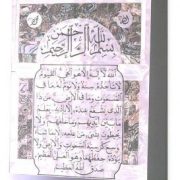 بسم الله الرحمن الرحيم
الله لا إله إلا هو الحي القيوم
لا تأخذه سنة ولا نوم له ما في
السموات وما في الأرض من ذا الذي
يشفع عنده إلا بإذنه يعلم ما
بين أيديهم وما خلفهم ولا
يحيطون بشيء من علمه إلا بما
شاء وسع كرسيه السموات والأرض
ولا يؤده حفظهما وهو العلي العظيم
صدق الله العظيم